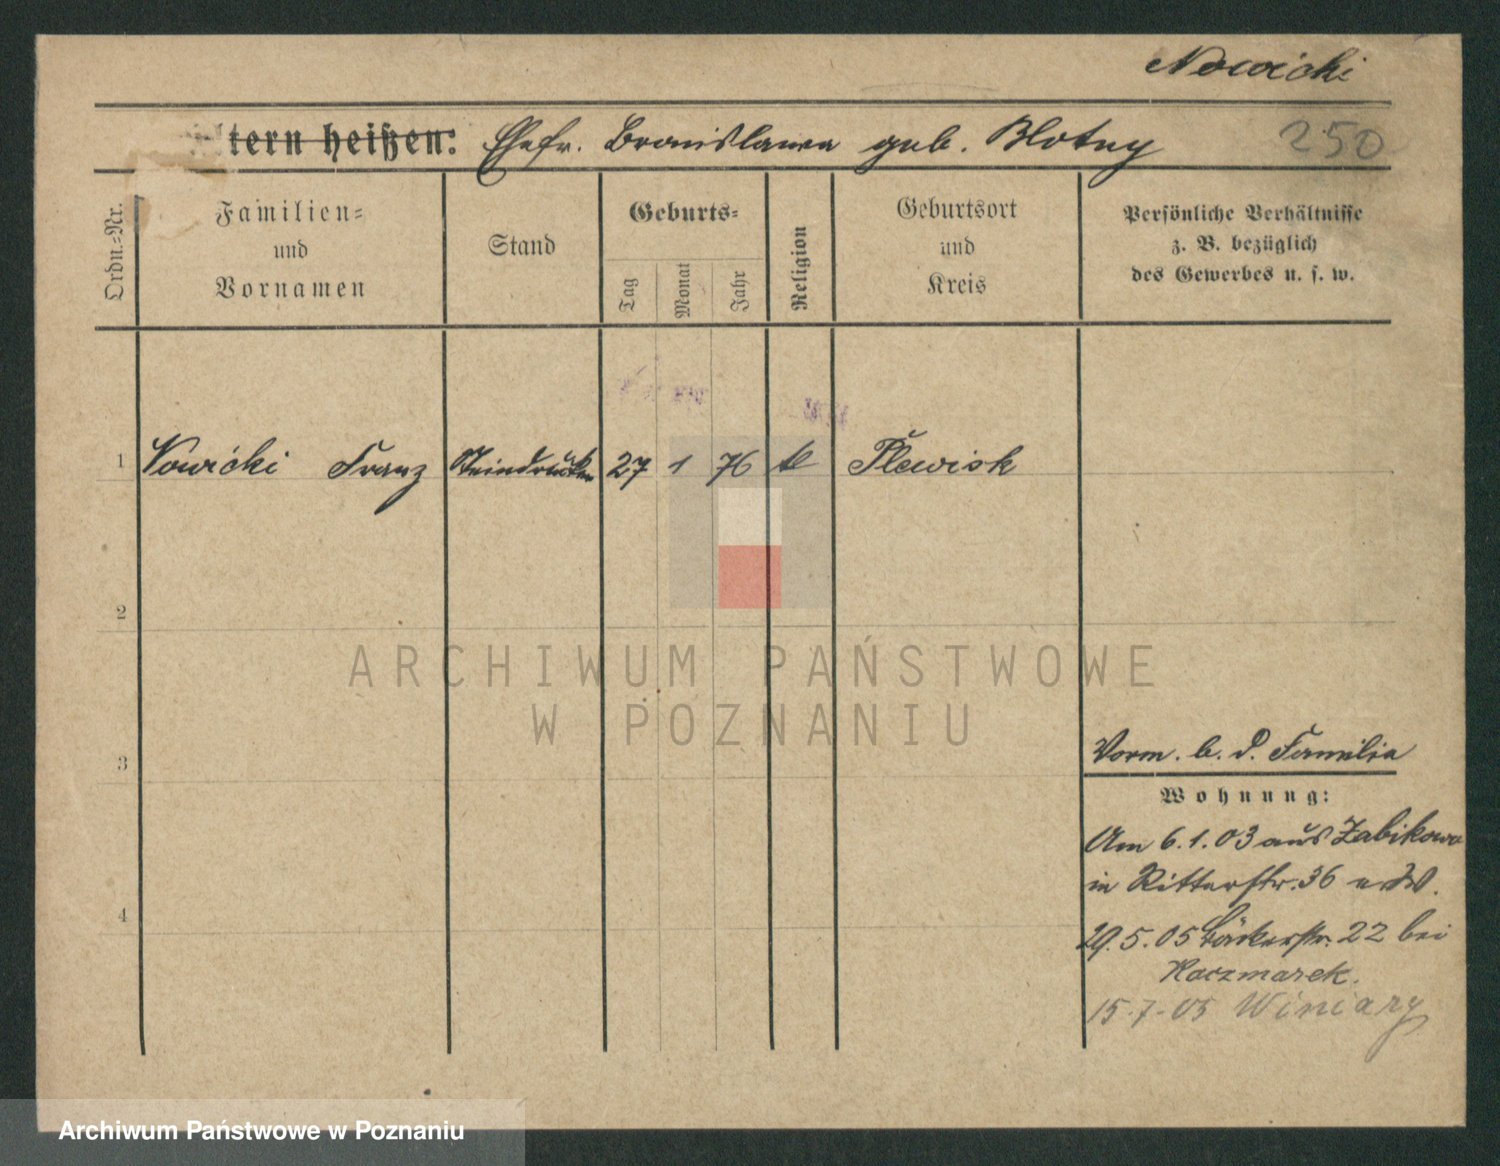 Nowicki
tern heißen: Ehefr. Bronislawa geb. Blotny 250
Ordn.=Nr.
Familien=
und
Vornamen
Stand
Geburts=
Tag
Monat
Jahr
Religion
Geburtsort
und
Kreis
Persönliche Verhältnisse
z. B. bezüglich
des Gewerbes u. s. w.
1 Nowicki Franz Steindrucker 27 1 76 k Plewisk
2
3
4
Vorm. b. d. Familie
Wohnung:
Am 6.1.03 aus Zabikowo
in Ritterstr. 36
29.5.05 Bäckerstr. 22 bei
Kaczmarek.
15.7.05 Winiary
ARCHIWUM PAŃSTWOWE
W POZNANIU
Archiwum Państwowe w Poznaniu